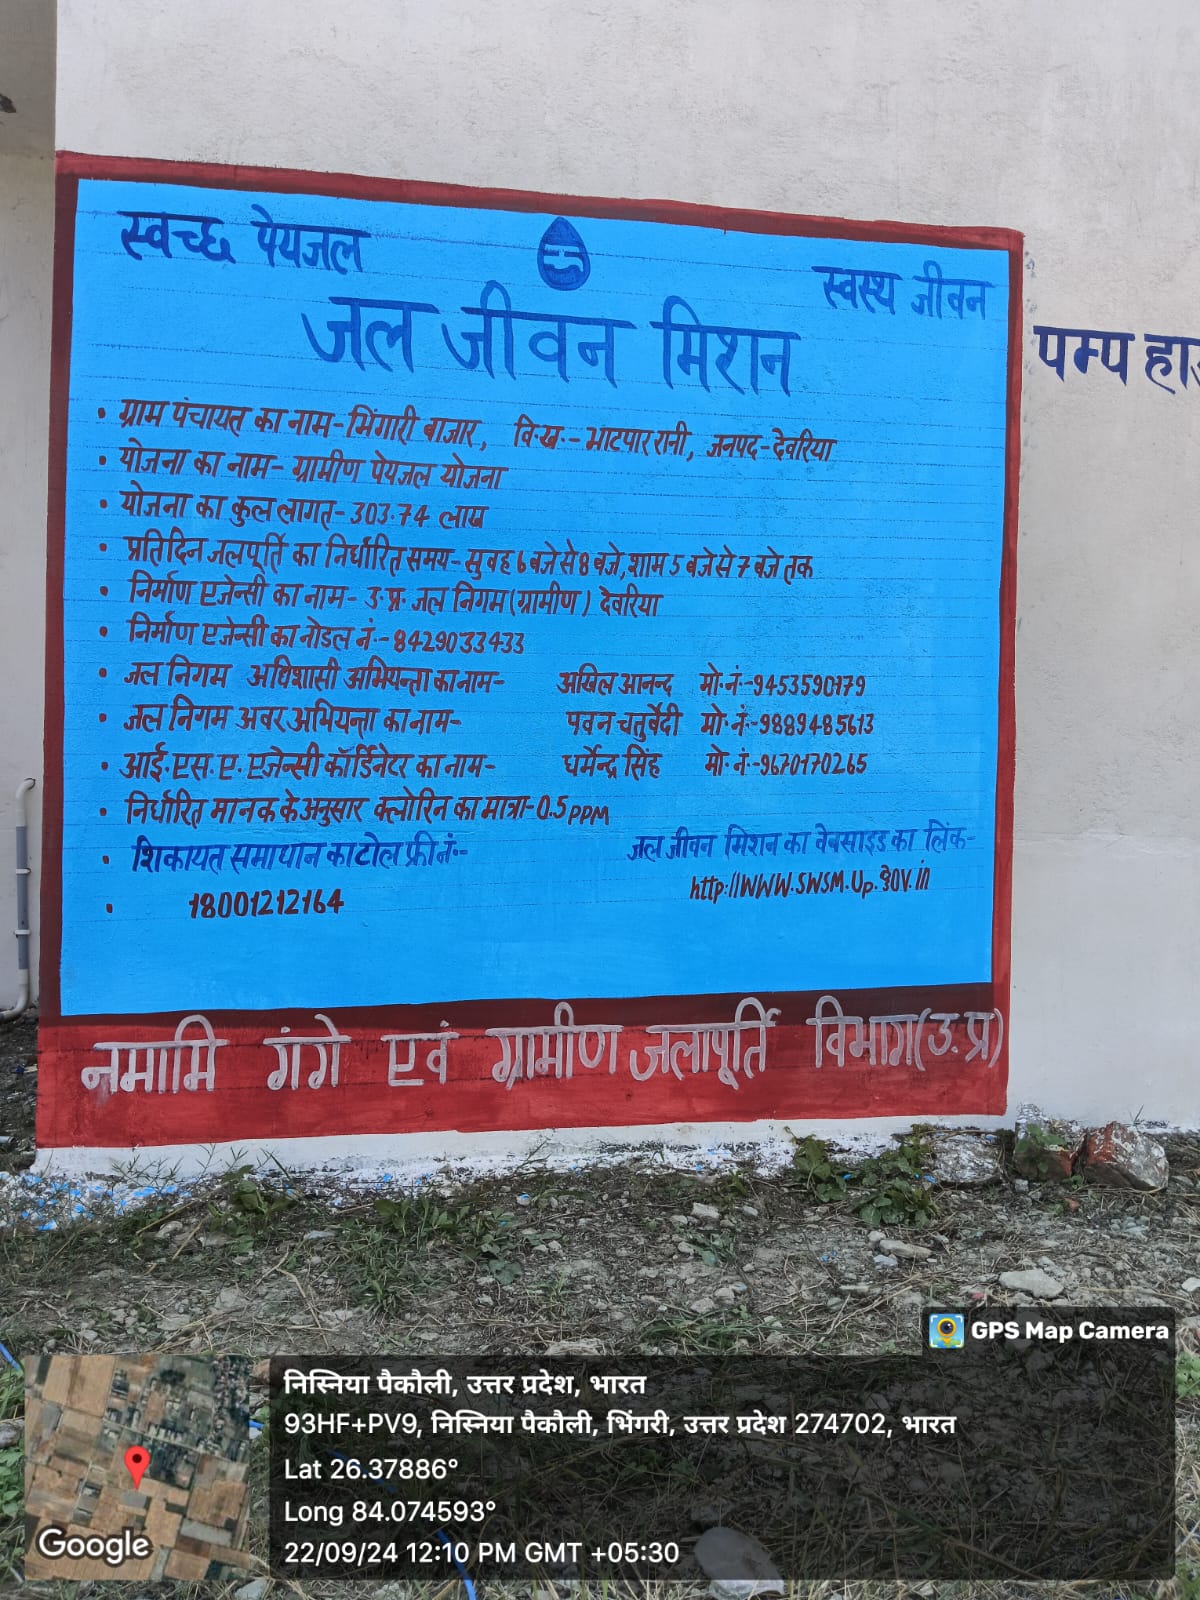 स्वच्छ पेयजल
स्वस्थ जीवन
जल जीवन मिशन
पम्प हाउ
• ग्राम पंचायत का नाम-भिंगारी बाजार, वि.ख.-भाटपार रानी, जनपद-देवरिया
• योजना का नाम- ग्रामीण पेयजल योजना
• योजना का कुल लागत- 303.74 लाख
• प्रतिदिन जलपूर्ति का निर्धारित समय- सुबह 6 बजे से 8 बजे, शाम 5 बजे से 7 बजे तक
• निर्माण एजेन्सी का नाम- उ.प्र. जल निगम (ग्रामीण) देवरिया
• निर्माण एजेन्सी का नोडल नं.- 8429033433
• जल निगम अधिशासी अभियन्ता का नाम- अखिल आनन्द मो.नं.-9453590179
• जल निगम अवर अभियन्ता का नाम- पवन चतुर्वेदी मो.नं.-9889485613
• आई.एस.ए. एजेन्सी कॉर्डिनेटर का नाम- धर्मेन्द्र सिंह मो.नं.-9670170265
• निर्धारित मानक के अनुसार क्लोरिन का मात्रा-0.5 PPM
• शिकायत समाधान का टोल फ्री नं.-
• 18001212164
जल जीवन मिशन का वेबसाइड का लिंक-
http://WWW.SWSM.Up.gov.in
नमामि गंगे एवं ग्रामीण जलापूर्ति विभाग(उ.प्र)
GPS Map Camera
निस्निया पैकौली, उत्तर प्रदेश, भारत
93HF+PV9, निस्निया पैकौली, भिंगरी, उत्तर प्रदेश 274702, भारत
Lat 26.37886°
Long 84.074593°
22/09/24 12:10 PM GMT +05:30
Google